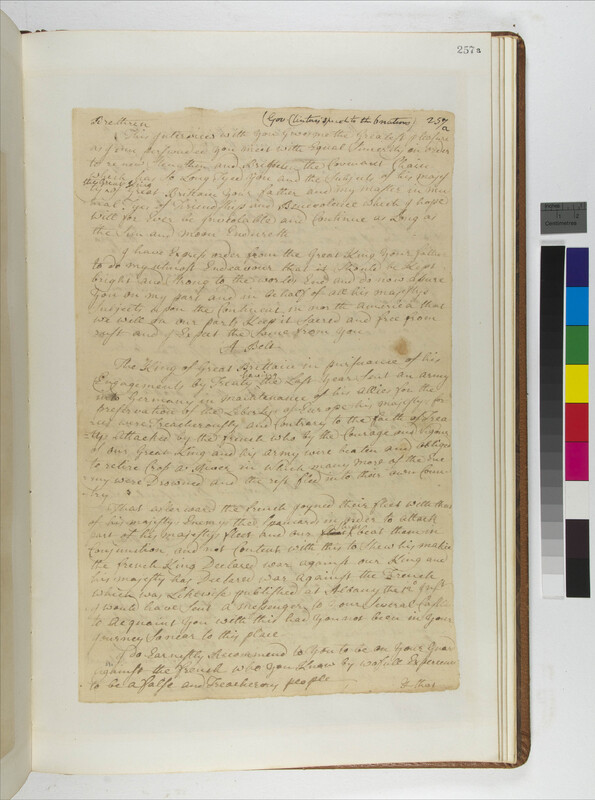 257a
(Gov Clintons Speech to the 6 nations) 257a
Brethren
This Interview with You Gives me the Greatest pleasure
as I am perswaded you meet with Equal Sincerity in order
to renew Strengthen and Brighten the Covenant Chain
which has so Long tyed You and the Subjects of his majes
the Great King
ty of Great Brittain Your father and my master in mu
tual tyes of Friendship and Benevolence which I hope
will for Ever be Inviolable and Continue as Long as
the Sun and moon Endureth
I have Express order from the Great King Your father
to do my utmost Endeavour that it Should be Kept
bright and Strong to the worlds End and do now assure
You on my part and in behalf of all his majestys
Subjects upon the Continent in north America that
we will on our parts Keep it Sacred and free from
rust and I Expect the Same from You
A Belt
The King of Great Brittain in pursuance of his
Engagements by Treaty the Last Year Sent an army
into Germany in maintenance of his allies for the
preservation of the Liberties of Europe his majestys for
ces were Treacherously and Contrary to the faith of Trea
tys attacked by the french who by the Courage and
of our Great King and his army were beaten and obliged
to retire Cross a River in which many more of the Ene
my were Drowned and the rest fled into their own Coun
try
That afterward the french joyned their fleet with that
of his majestys Enemy the Spaniard in order to attack
part of his majestys fleet and our beat them in
Conjunction and not Content with this to shew his malice
the french King Declared war against our King and
his majesty has Declared war against the French
which was Likewise published at Albany the
I would have Sent a messenger to Your Several Castles
to Acquaint You with this had You not been in Your
Journey So near to this place
I Do Earnestly Recommend to You to be on Your Guard
against the French who You Know by wofull Experience
to be a false and Treacherous people
& that